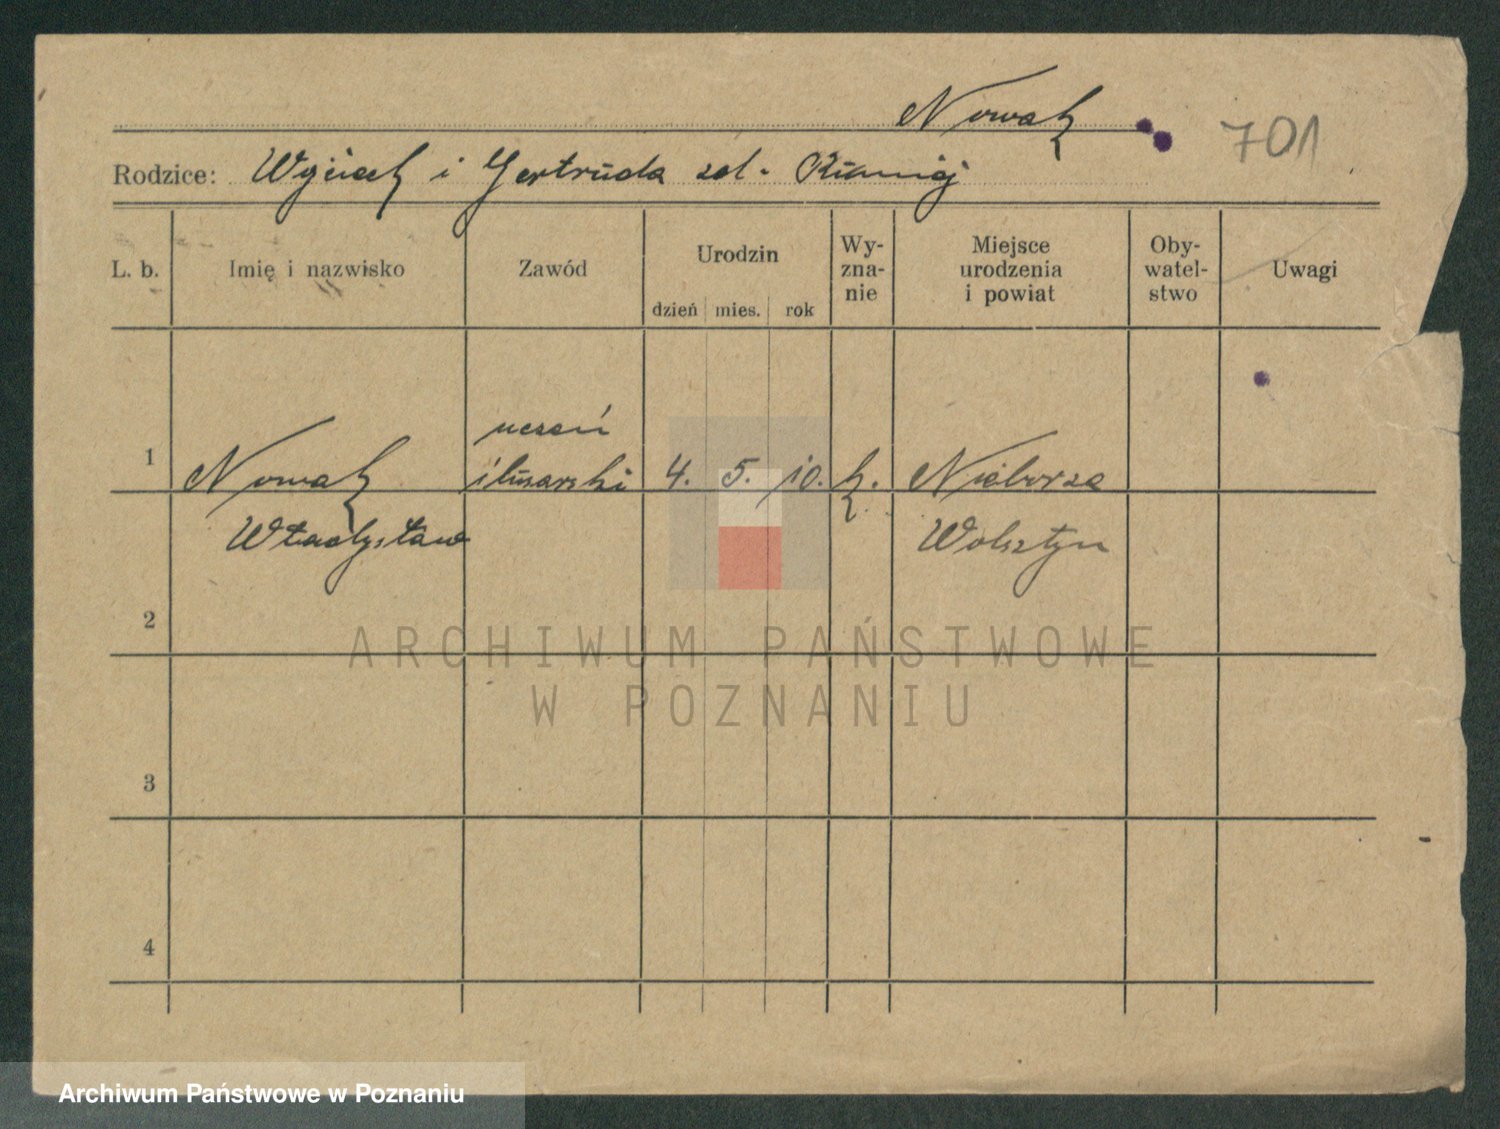 Nowak
701
Rodzice: Wojciech i Gertruda
L. b. Imię i nazwisko Zawód Urodzin dzień mies. rok Wy-zna-nie Miejsce urodzenia i powiat Oby-watel-stwo Uwagi
uczeń
1 Nowak ślusarski 4. 5. 10. k. Nieborza
Władysław Wolsztyn
2
ARCHIWUM PAŃSTWOWE
W POZNANIU
3
4
Archiwum Państwowe w Poznaniu